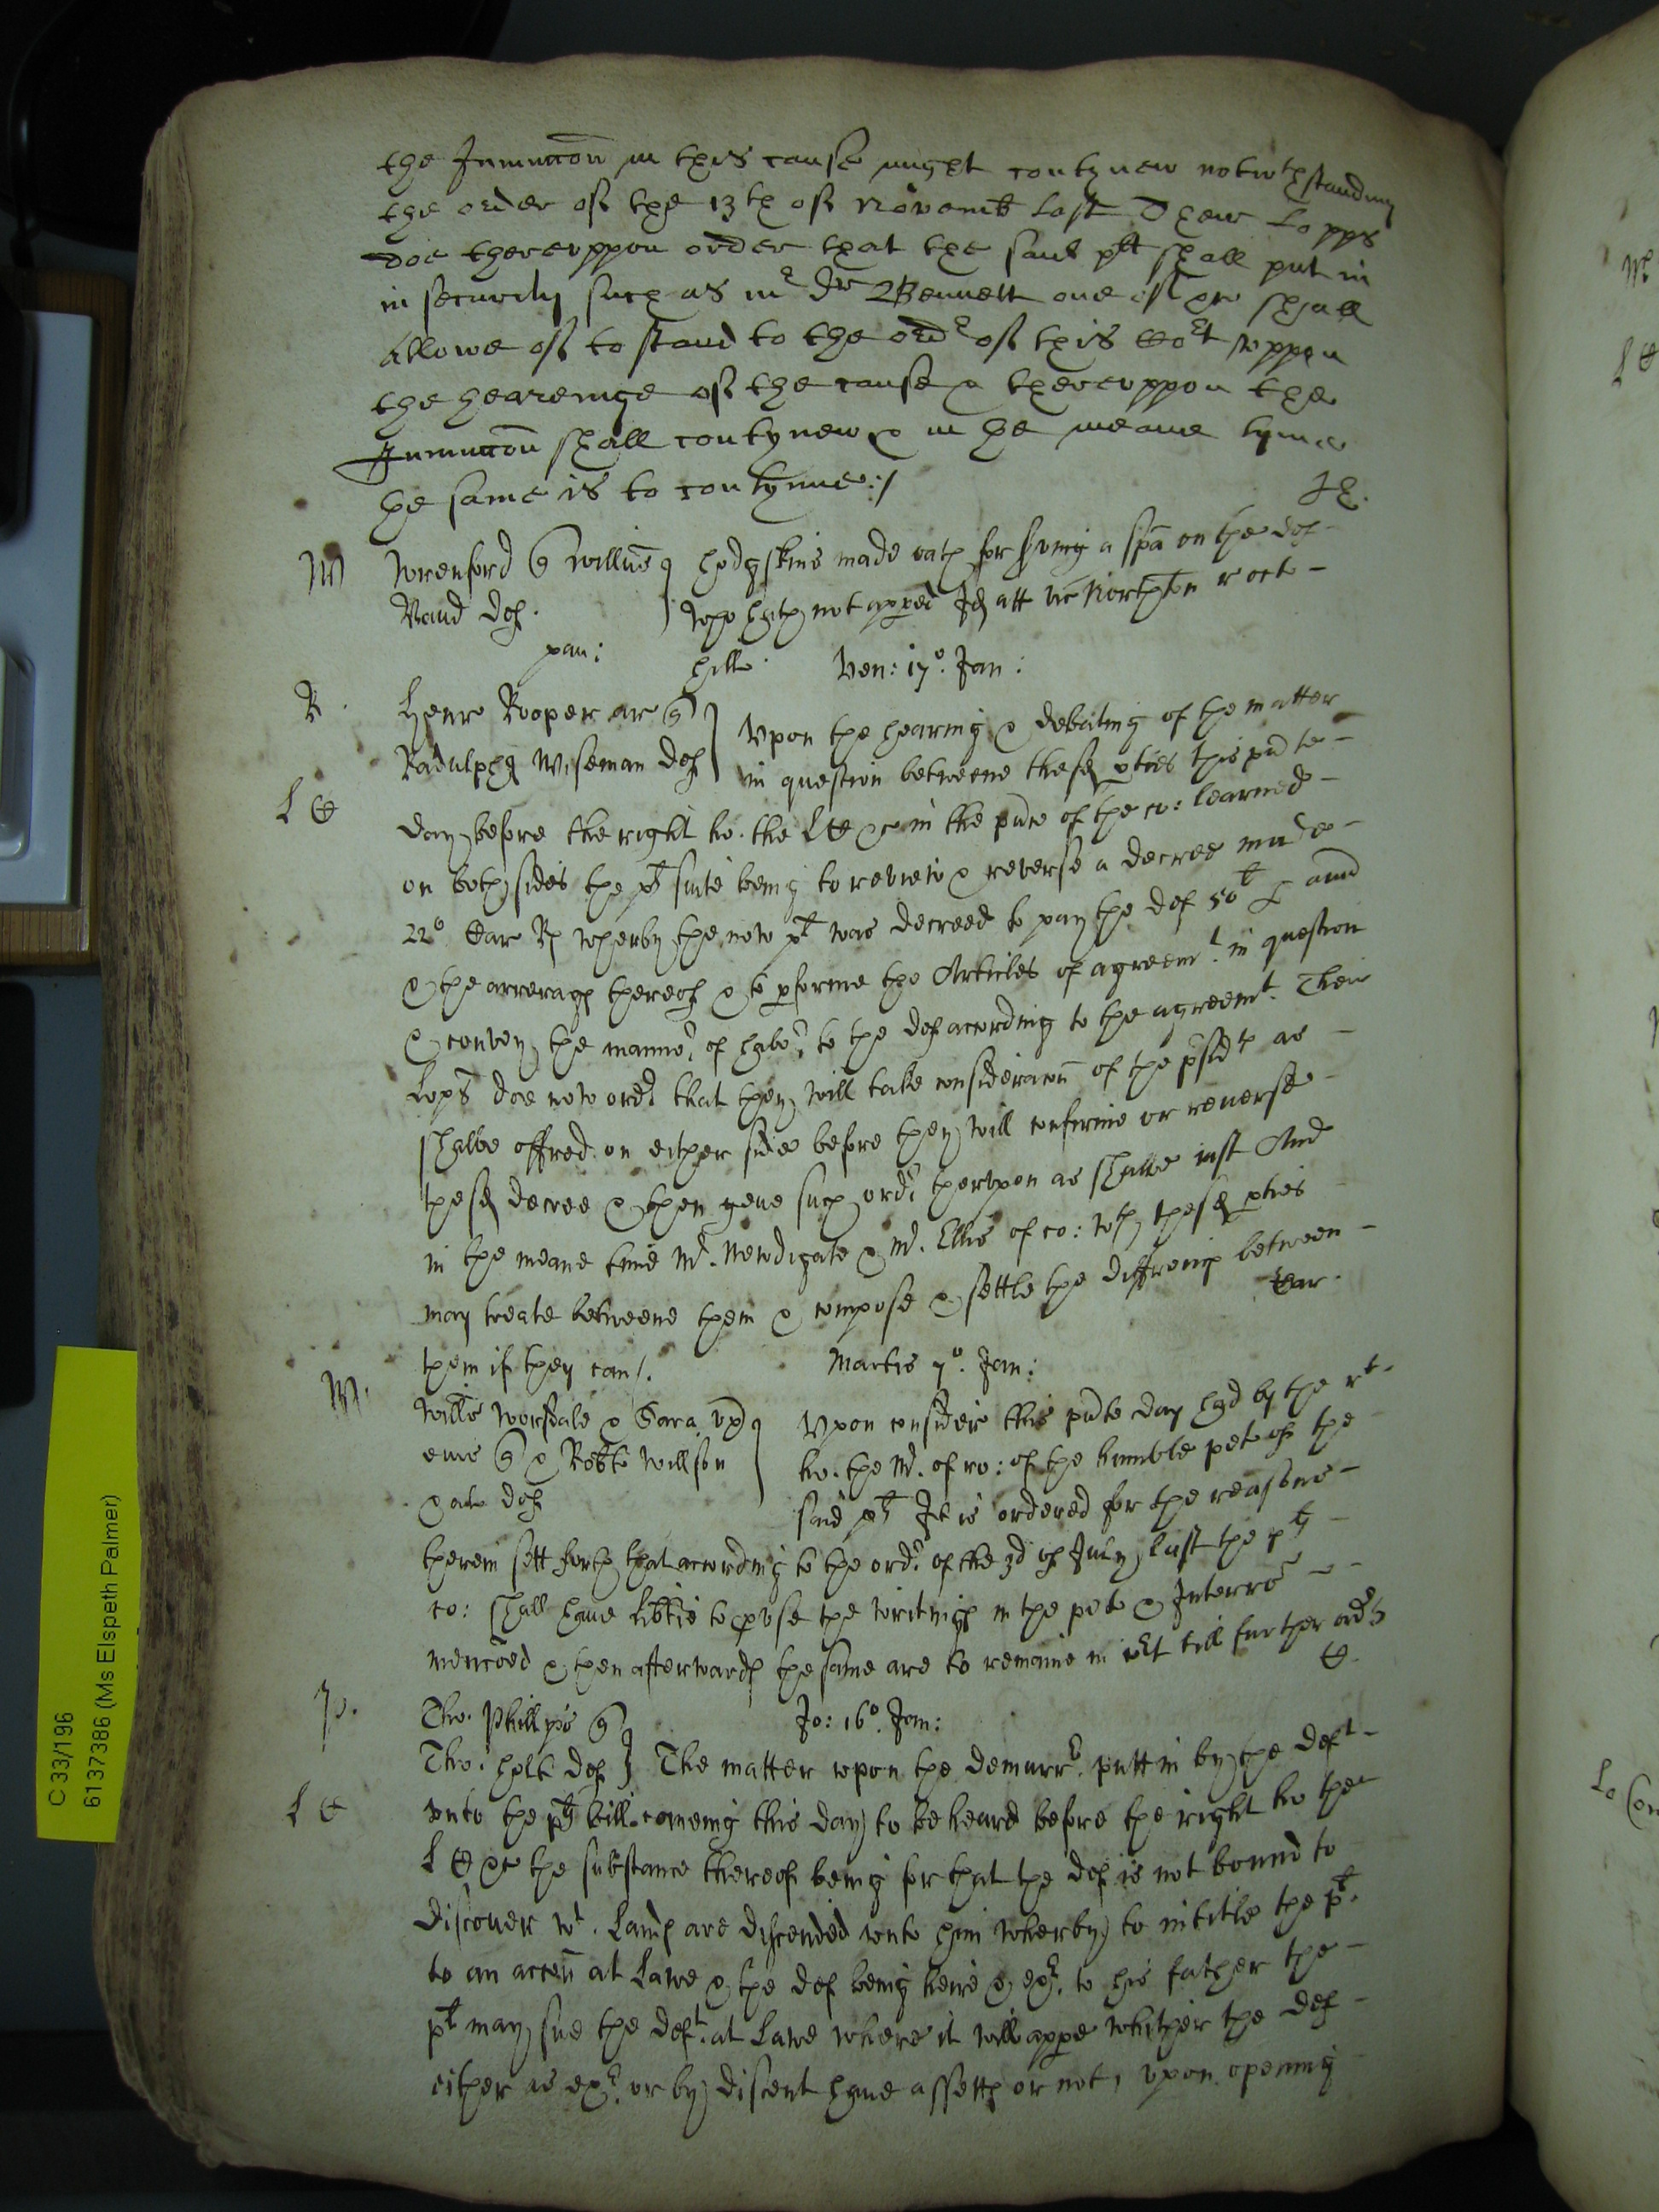 the Iniunccon in this cause might contynew notwthstanding
the order of the 13th of Novemb last Their Lopps
doe thereuppon order that the said plt shall put in
in security such as mr Dr Bennett one of &c shall
allowe of to stand to the ordr of this Cort uppon
the hearinge of the cause & thereuppon the
Iniunccon shall contynew & in he meane tyme
he same is to contynue:/
W Wrenford q Willms hodgskins made oath for serving a spa on the def
Vaud def. who hath not appeed Id att vic Northton r oct
pau: hill Ven: 17o. Jan:
R. Henr Rooper ar q Upon the hearing & debating of the matter
Radulphus Wiseman def in question betweene these pties this pnte
L C day before the right ho. the L C &c in the pnce of the co: learned
on both sides the plts suite being to review & reverse a decree made
22o Car R wherby the now plt was decreed to pay the def 50l p ann
& the arrerages thereof & to pforme the Articles of agreemt. in question
& convey the mannor of to the def according to the agreemt. Their
Lops doe now ordr that they will take consideracon of the as
shalbe offred on either side before they will confirme or reuerse
these decree & then geue such ordr therupon as shalbe iust And
in the meane time Mr. Newdigate & Mr. Ellis of co: wth these pties
may treate betweene them & compose & settle the differences between
them if they can/. Car.
Martis 7o. Jan:
W. Willm Worsdale & Sara ux Upon consider this pnte day had by the rt
eius q & Robto Willson ho. the Mr. of ro: of the humble peto of the
& al def said plt It is ordered for the reasons
therein sett forth that according to the ordr of the 3d of July last the plts
co: shall haue libtie to pvse the writings in the peto & Interro
mencoed & then afterwards the same are to remaine in Ct till further ordr
C.
p. Tho. Phillips q Jo: 16o. Jan:
Tho. holt def The matter upon the demurrr. putt in by the deft
L C unto the plts bill comeing this day to be heard before the right ho the
L C &c the substance thereof being for that the def is not bound to
discouer wt. lands are discended unto him wherby to intitle the plt.
to an accon at lawe & the def being heire & exr. to his father the
plt may sue the deft. at lawe where it will appe whither the def
either as exr. or by discent haue assetts or not, upon opening
C 33/196
6137386 (Ms Elspeth Palmer)